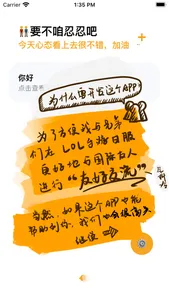 1:35 PM
要不咱忍忍吧
今天心态看上去很不错、加油
你好
点击查看
为什么要开发这个APP
为了方便我与兄弟
们在LOL手游日服
更好地与国际友人
进行“友好交流”
当然，如果这个APP也能
帮助到你，我们